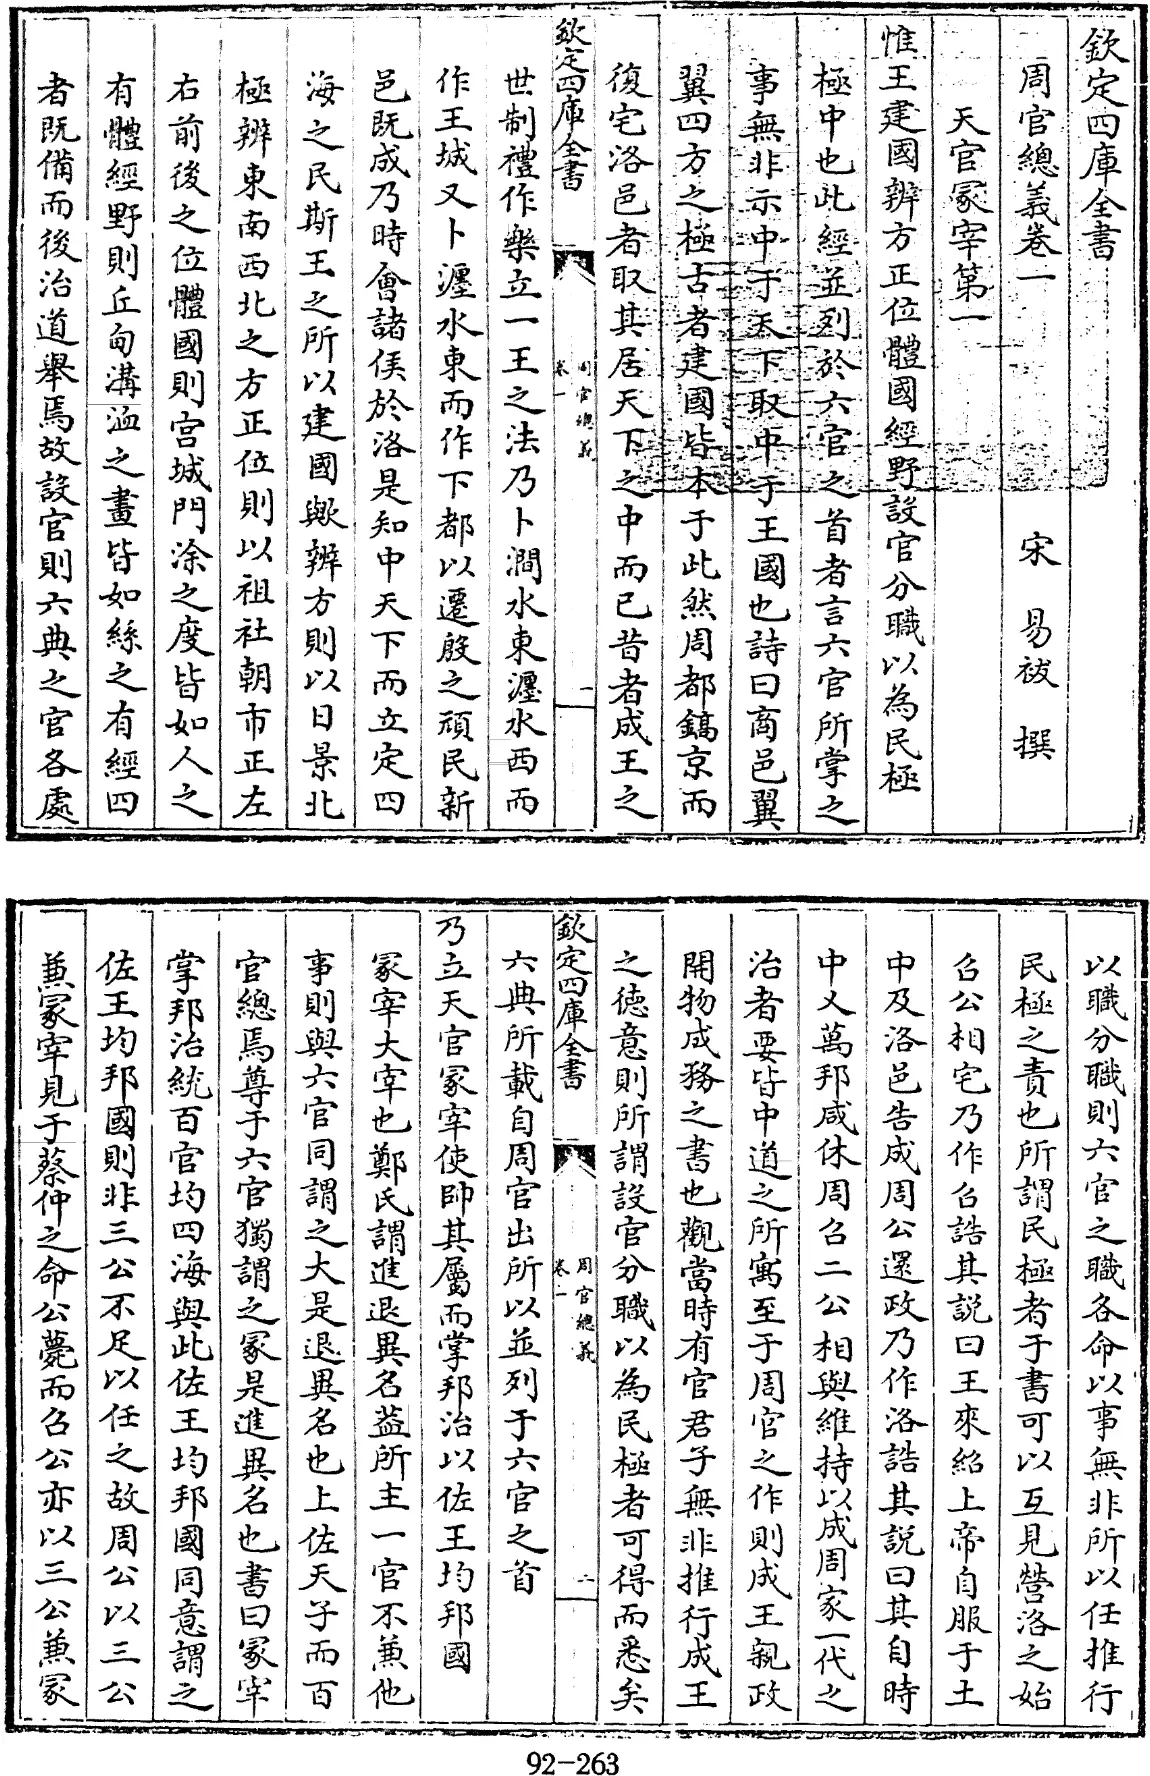 欽定四庫全書
周官總義卷一
宋 易祓 撰
天官冢宰第一
惟王建國辨方正位體國經野設官分職以為民極
極中也此經並列於六官之首者言六官所掌之
事無非示中于天下取中于王國也詩曰商邑翼
翼四方之極古者建國皆本于此然周都鎬京而
復宅洛邑者取其居天下之中而已昔者成王之
欽定四庫全書
周官總義
卷一
一
世制禮作樂立一王之法乃卜澗水東瀍水西而
作王城又卜瀍水東而作下都以遷殷之頑民新
邑既成乃時會諸侯於洛是知中天下而立定四
海之民斯王之所以建國歟辨方則以日景北
極辨東南西北之方正位則以祖社朝市正左
右前後之位體國則宫城門涂之度皆如人之
有體經野則丘甸溝洫之畫皆如絲之有經四
者既備而後治道舉焉故設官則六典之官各處
以職分職則六官之職各命以事無非所以任推行
民極之責也所謂民極者于書可以互見營洛之始
召公相宅乃作召誥其説曰王來紹上帝自服于土
中及洛邑告成周公還政乃作洛誥其説曰其自時
中乂萬邦咸休周召二公相與維持以成周家一代之
治者要皆中道之所寓至于周官之作則成王親政
開物成務之書也觀當時有官君子無非推行成王
之徳意則所謂設官分職以為民極者可得而悉矣
欽定四庫全書
周官總義
卷一
二
六典所載自周官出所以並列于六官之首
乃立天官冢宰使帥其屬而掌邦治以佐王均邦國
冢宰大宰也鄭氏謂進退異名葢所主一官不兼他
事則與六官同謂之大是退異名也上佐天子而百
官總焉尊于六官獨謂之冢是進異名也書曰冢宰
掌邦治統百官均四海與此佐王均邦國同意謂之
佐王均邦國則非三公不足以任之故周公以三公
兼冢宰見于蔡仲之命公薨而召公亦以三公兼冢
92-263